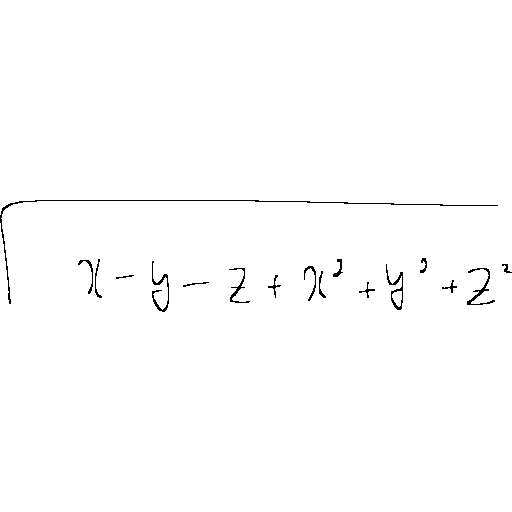 √(x - y - z + x² + y³ + z²)